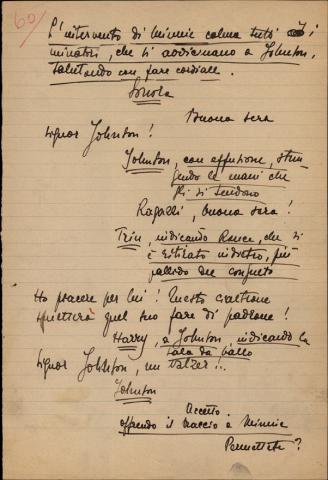 60
L'intervento di Minnie calma tutti i
minatori, che si avvicinano a Johnson,
salutando con fare cordiale.
Sonora
Buona sera
Signor Johnson!
Johnson, con effusione, strin-
gendo le mani che
gli si tendono
Ragazzi, buona sera!
Trin, indicando Rance, che si
è ritirato indietro, più
pallido del consueto
Ho piacere per lui! Questo cialtrone
smetterà quel suo fare di padrone!
Harry, a Johnson, indicando la
sala da ballo
Signor Johnson, un valzer?..
Johnson
Accetto.
offrendo il braccio a Minnie
Permettete?